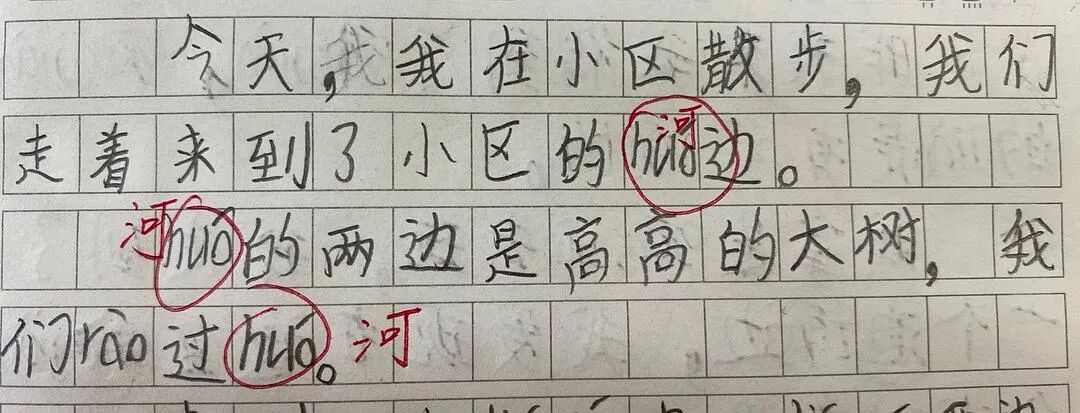 今天,我在小区散步,我们
走着来到了小区的huó河边。
河huó的两边是高高的大树,我
们rào过huó。河